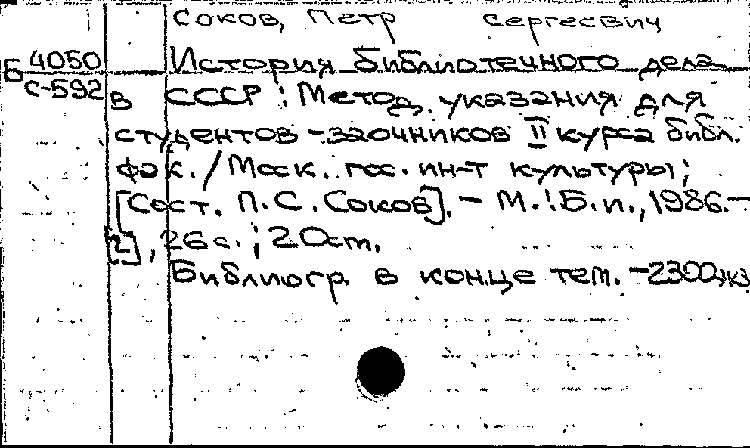 Соков, Петр Сергеевич
Б 4050
С-592
История библиотечного дела
в СССР : Метод. указания для
студентов-заочников II курса библ.
фак. / Моск. гос. ин-т культуры;
[Сост. П.С. Соков]. - М.: Б.и., 1986. -
[2], 26 с. ; 20 cm.
Библиогр. в конце тем. - 2300экз